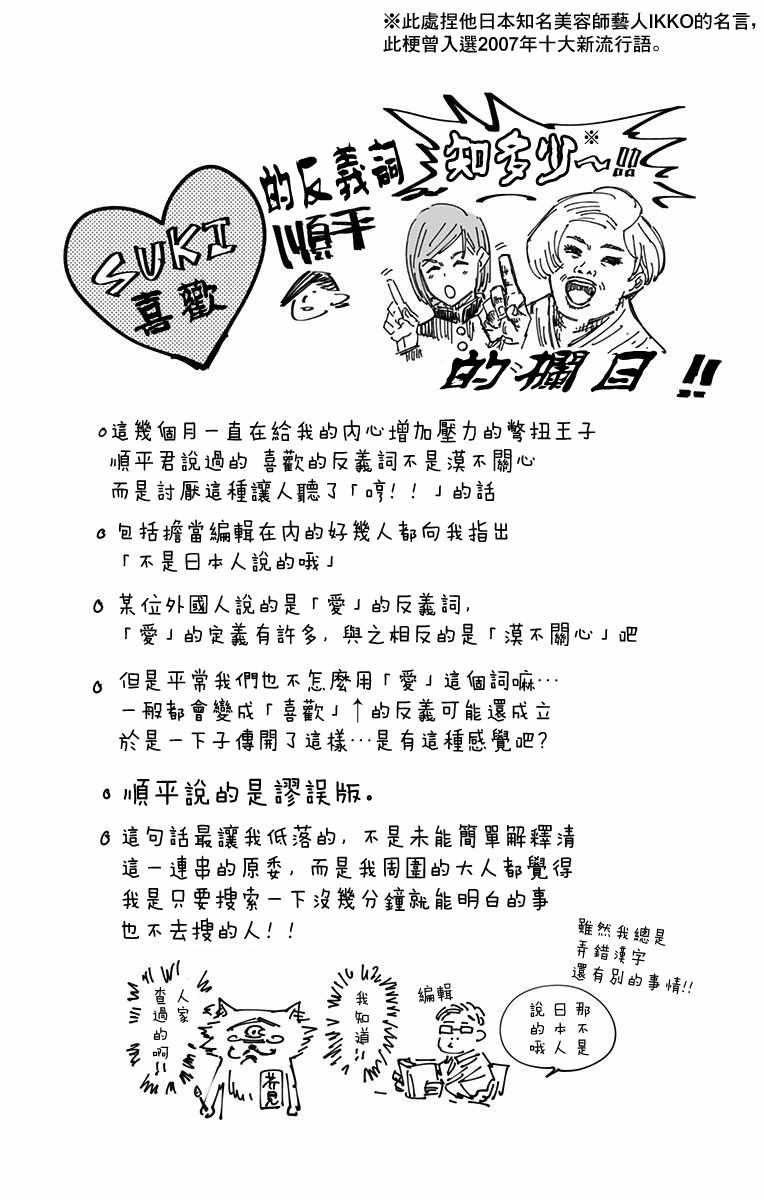 ※此處捏他日本知名美容師藝人IKKO的名言，
此梗曾入選2007年十大新流行語。
SUKI
喜歡
的反義詞
知多少～※!!!
順平
的欄目!!
這幾個月一直在給我的內心增加壓力的彆扭王子
順平君說過的 喜歡的反義詞不是漠不關心
而是討厭這種讓人聽了「哼！！」的話
包括擔當編輯在內的好幾人都向我指出
「不是日本人說的哦」
某位外國人說的是「愛」的反義詞，
「愛」的定義有許多，與之相反的是「漠不關心」吧
但是平常我們也不怎麼用「愛」這個詞嘛…
一般都會變成「喜歡」↑的反義可能還成立
於是一下子傳開了這樣…是有這種感覺吧？
順平說的是謬誤版。
這句話最讓我低落的，不是未能簡單解釋清
這一連串的原委，而是我周圍的大人都覺得
我是只要搜索一下沒幾分鐘就能明白的事
也不去搜的人！！
雖然我總是
弄錯漢字
還有別的事情!!
人家
查過的啊!!
芥見
我知道!!
編輯
那不是
日本人
說的哦